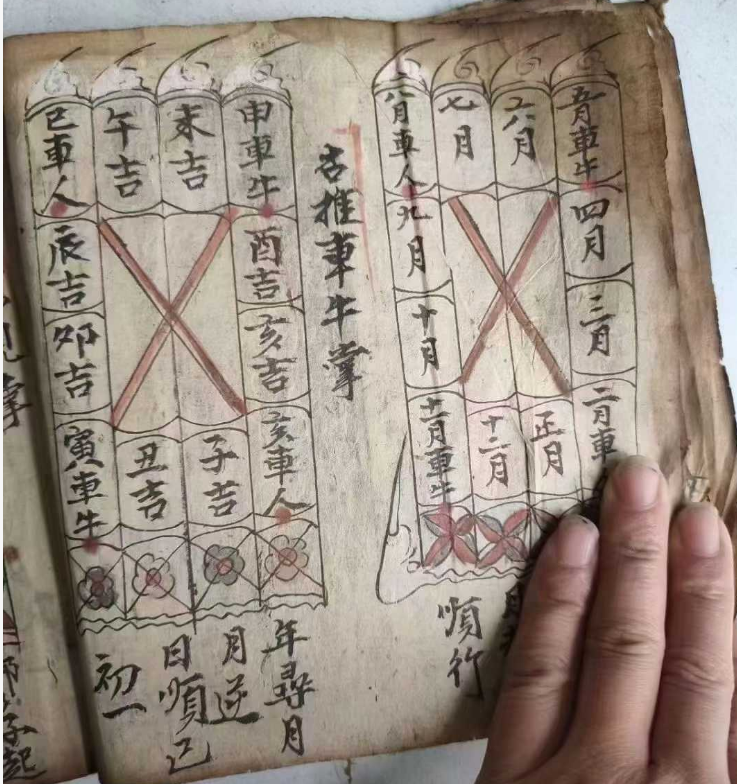 五月車牛
四月
三月
二月車
六月
正月
七月
十二月
八月車人
九月
十月
十一月車牛
順行
推車牛掌
申車牛
酉吉
亥吉
亥車人
未吉
子吉
午吉
丑吉
巳車人
辰吉
卯吉
寅車牛
年尋月
月逆
日順己
初一